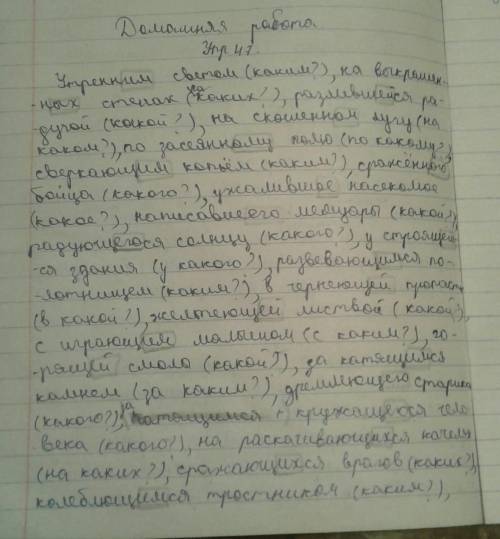 Домашняя работа
Упр 47.
Утренним светом (каким?), на выкрашен-
-ных стенах (на каких?), разлившейся ра-
дугой (какой?), на скошенном лугу (на
каком?), по засеянному полю (по какому?),
сверкающим копьём (каким?), сражённого
бойца (какого?), ужалившее насекомое
(какое?), написавшего мемуары (какой?),
радующегося солнцу (какого?), у строяще-
-ся здания (у какого?), развевающимся по-
-лотнищем (каким?), в чернеющей пропасти
(в какой?), желтеющей листвой (какой?),
с играющим малышом (с каким?), го-
рящей смоло (какой?), за катящимся
камнем (за каким?), дремлющего старика
(какого?), кружащегося чело
века (какого?), на раскачивающихся качелях
(на каких?), сражающихся врагов (каких?),
колеблющимся тростником (каким?),